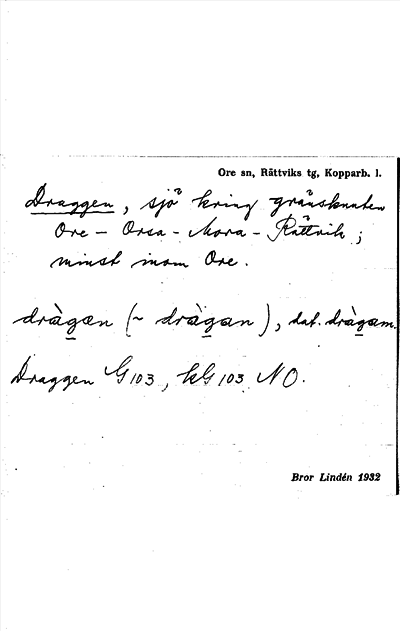 Ore sn, Rättviks tg, Kopparb. l.
Draggen, sjö kring gränsknuten
Ore - Orsa - Mora - Rättvik;
minst inom Ore.
dràgæn (~ dràgan), dat. dràgam.
Draggen G 103, kG 103 NO.
Bror Lindén 1932